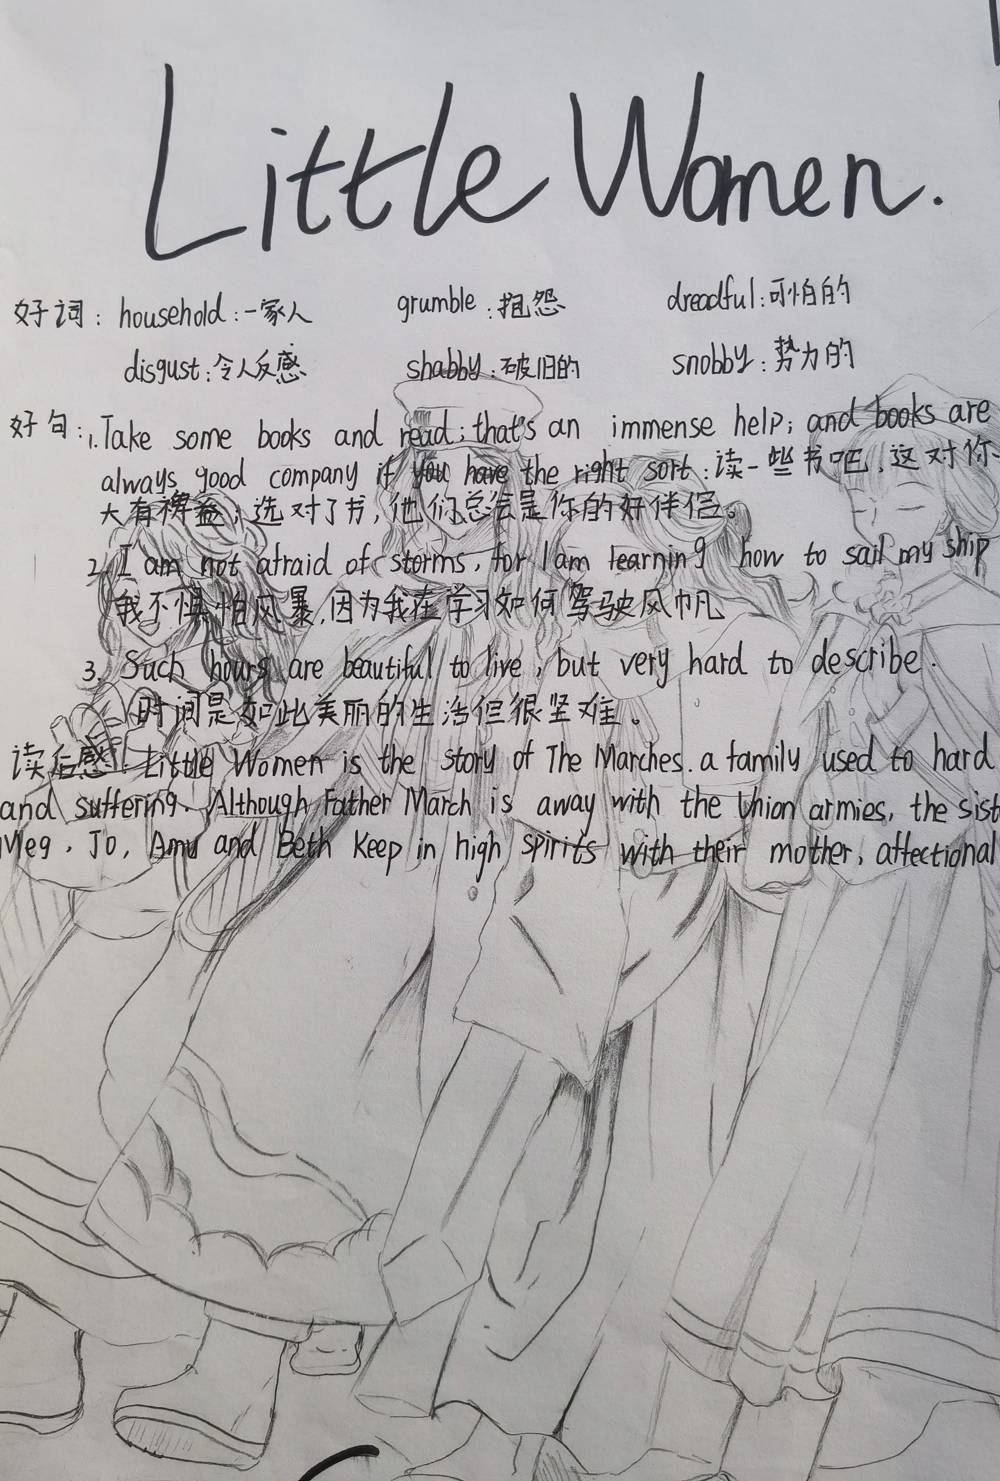 Little Women.
好词: household:一家人 grumble:抱怨 dreadful:可怕的
disgust:令人反感 shabby:破旧的 snobby:势力的
好句:1.Take some books and read; that's an immense help; and books are
always good company if you have the right sort:读一些书吧,这对你
大有裨益;选对了书,他们总会是你的好伴侣。
2. I am not afraid of storms, for I am learning how to sail my ship
我不惧怕风暴,因为我在学习如何驾驶风帆
3. Such hours are beautiful to live, but very hard to describe.
时间是如此美丽的生活但很坚难。
读后感: Little Women is the story of The Marches. a family used to hard
and suffering. Although Father March is away with the Union armies, the sist
Meg, Jo, Amy and Beth keep in high spirits with their mother, affectional